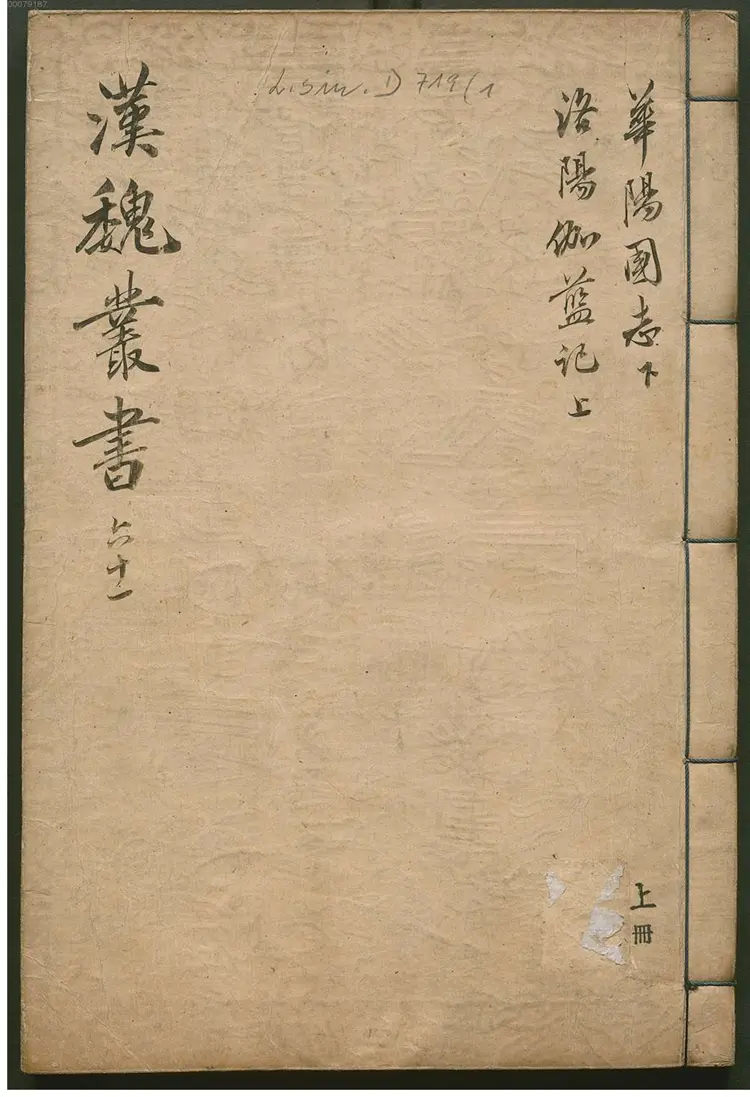 00079187
L. sin. D 719(1
華陽國志下
洛陽伽藍記上
漢魏叢書六十一
上冊